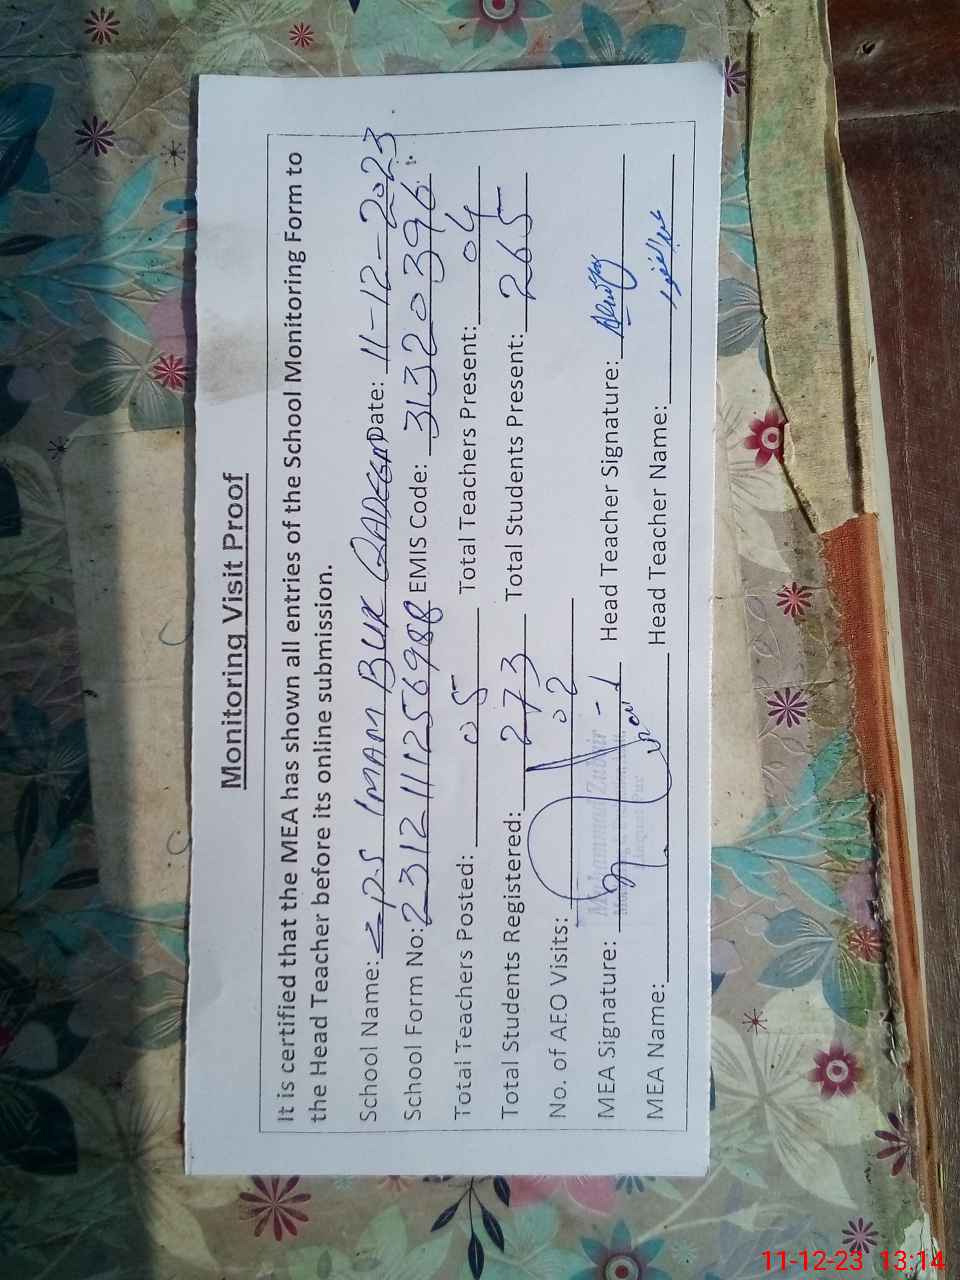 Monitoring Visit Proof
It is certified that the MEA has shown all entries of the School Monitoring Form to
the Head Teacher before its online submission.
School Name: GPS IMAM BUX QADEEM Date: 11-12-2023
School Form No: 2312111256988 EMIS Code: 31320396
Total Teachers Posted: 05 Total Teachers Present: 04
Total Students Registered: 273 Total Students Present: 265
No. of AEO Visits: 02
MEA Signature: Head Teacher Signature:
MEA Name: Head Teacher Name:
Muhammad Zubair
11-12-23 13:14